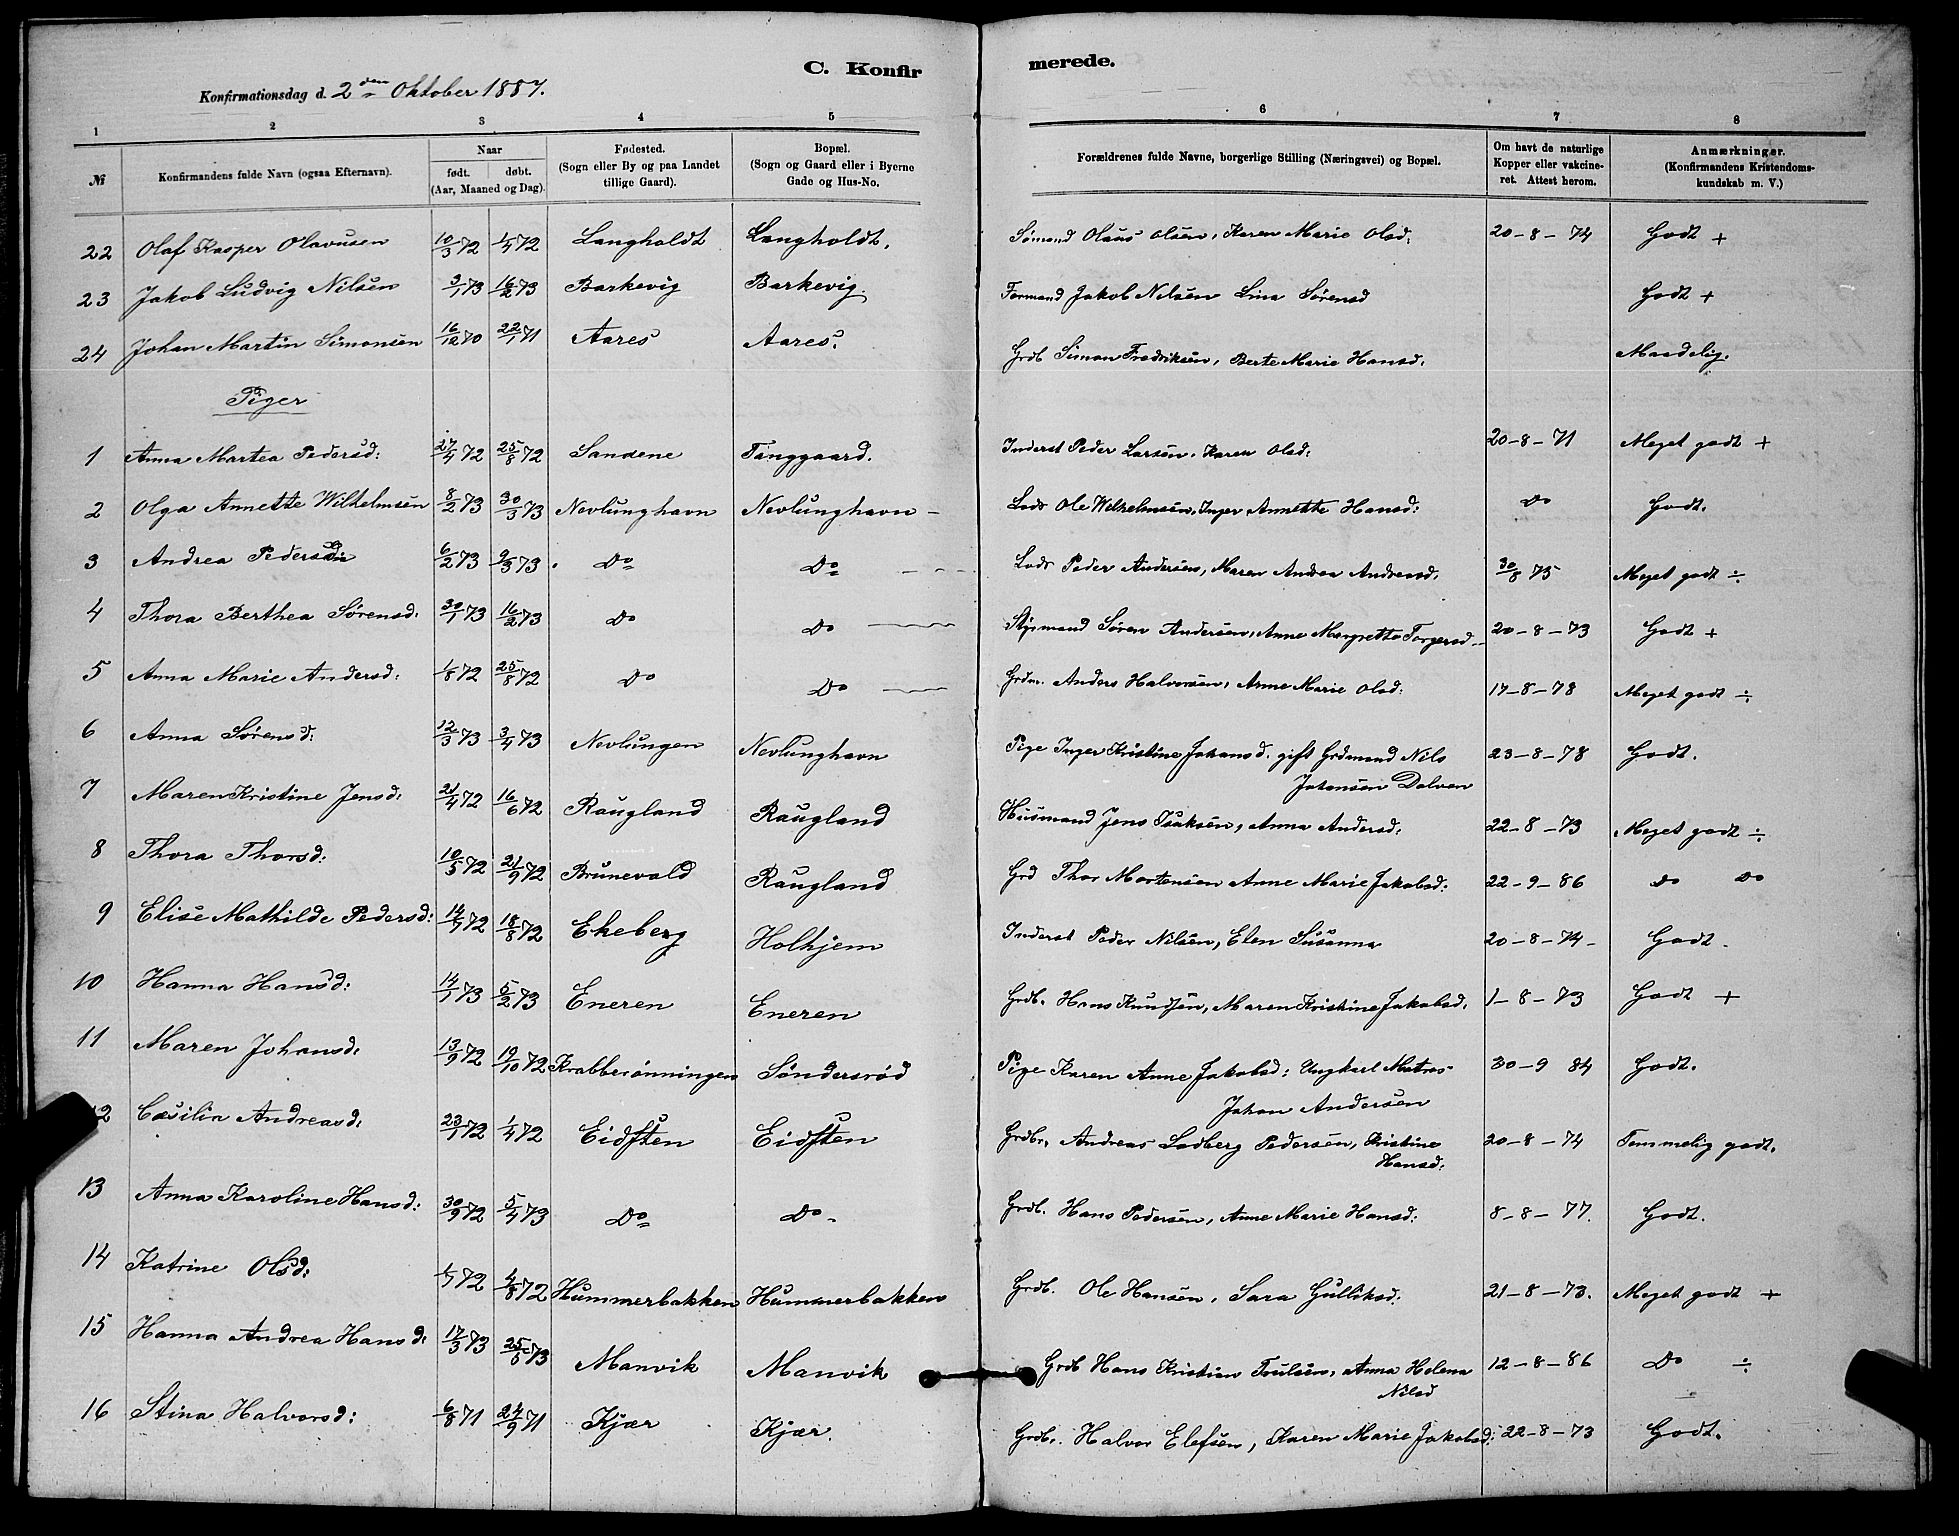 C. Konfirmerede.
Konfirmationsdag d. 2den Oktober 1887.
1 2 3 4 5 6 7 8
№ Konfirmandens fulde Navn (ogsaa Efternavn). Naar født. døbt. (Aar, Maaned og Dag). Fødested. (Sogn eller By og paa Landet tillige Gaard). Bopæl. (Sogn og Gaard eller i Byerne Gade og Hus-No. Forældrenes fulde Navne, borgerlige Stilling (Næringsvei) og Bopæl. Om havt de naturlige Kopper eller vakcineret. Attest herom. Anmærkninger. (Konfirmandens Kristendomskundskab m. V.)
22 Olaf Kasper Olavusen 10/3 72 1/4 72 Langholdt Langholdt. Sømand Olaus Olsen, Karen Marie Olsd: 20-8-74 Godt +
23 Jakob Ludvig Nilsen 3/1 73 16/2 73 Barkevig Barkevig. Formand Jakob Nilsen Lina Sørensd Godt +
24 Johan Martin Simonsen 16/12 70 22/1 71 Aares Aares. Grdb Simon Fredriksen, Berte Marie Hansd: Maadelig.
Piger
1 Anna Martea Pedersd: 27/4 72 25/8 72 Sandene Tanggaard. Inderst Peder Larsen, Karen Olsd: 20-8-71 Meget godt +
2 Olga Annette Wilhelmsen 8/2 73 30/3 73 Nevlunghavn Nevlunghavn - Lods Ole Wilhelmsen, Inger Annette Hansd: Do Godt.
3 Andrea Pedersd: 6/2 73 9/3 73 Do Do Lods Peder Andersen, Maren Andrea Andreasd. 30/8 75 Meget godt ÷
4 Thora Berthea Sørensd: 30/1 73 16/2 73 Do Do Styrmand Søren Andersen, Anne Margrette Torgersd- 20-8-73 Godt +
5 Anna Marie Andersd: 1/8 72 25/8 72 Do Do Grdm. Anders Halvorsen, Anne Marie Olsd: 17-8-78 Meget godt ÷
6 Anna Sørensd: 12/3 73 3/4 73 Nevlungen Nevlunghavn Pige Inger Kristine Johansd. gift Grdmand Nils 23-8-78 Godt.
Johansen Dolven
7 Maren Kristine Jensd: 21/4 72 16/6 72 Raugland Raugland Husmand Jens Isaksen, Anna Andersd: 22-8-73 Meget godt ÷
8 Thora Thorsd: 10/5 72 21/9 72 Brunevald Raugland Grd Thor Mortensen Anne Marie Jakobsd: 22-9-86 Do Do
9 Elise Mathilde Pedersd: 14/7 72 18/8 72 Ekeberg Holhjem Inderst Peder Nilsen, Elen Susanna 20-8-74- Godt.
10 Hanna Hansd: 14/1 73 5/2 73 Eneren Eneren Grdb. Hans Knudsen, Maren Kristine Jakobsd. 1-8-73 Godt +
11 Maren Johansd: 13/9 72 19/10 72 Krabberønningen Søndersrød Pige Karen Anne Jakobsd: Ungkarl Matros 30-9 84 Godt.
Johan Andersen
12 Cæsilia Andreasd: 23/1 72 1/4 72 Eidsten Eidsten Grdbr. Andreas Ludberg Pedersen, Kristine 20-8-74 Temmelig godt.
Hansd:
13 Anna Karoline Hansd: 30/9 72 5/4 73 Do Do- Grdb. Hans Pedersen, Anne Marie Hansd: 8-8-77. Godt.
14 Katrine Olsd: 1/7 72 4/8 72 Hummerbakken Hummerbakken Grdb. Ole Hansen, Sara Gulliksd: 21-8-73. Meget godt +
15 Hanna Andrea Hansd: 17/3 73 25/5 73 Manvik Manvik Grdb Hans Kristian Trulsen, Anna Helena 12-8-86 Do ÷
Nilsd
16 Stina Halvorsd: 6/8 71 24/9 71 Kjær Kjær. Grdbr. Halvor Elefsen, Karen Marie Jakobsd: 22-8-73 Godt.